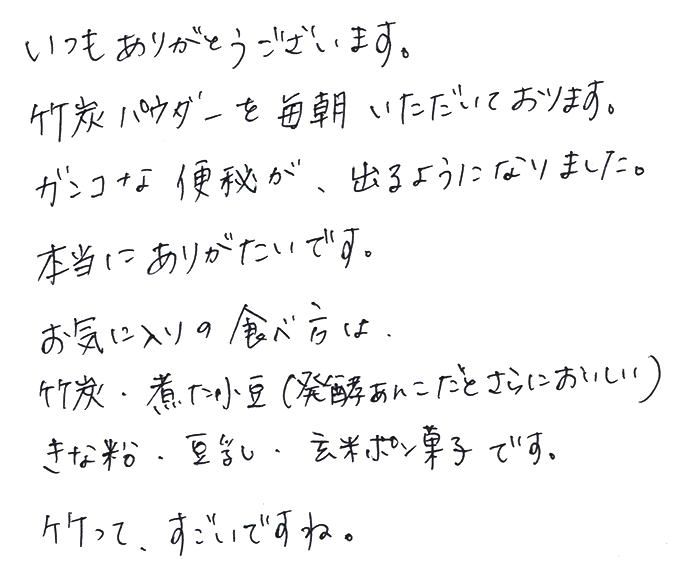 いつもありがとうございます。
竹炭パウダーを毎朝いただいております。
ガンコな便秘が、出るようになりました。
本当にありがたいです。
お気に入りの食べ方は、
竹炭・煮た小豆(発酵あんこだとさらにおいしい)
きな粉・豆乳・玄米ポン菓子です。
竹って、すごいですね。